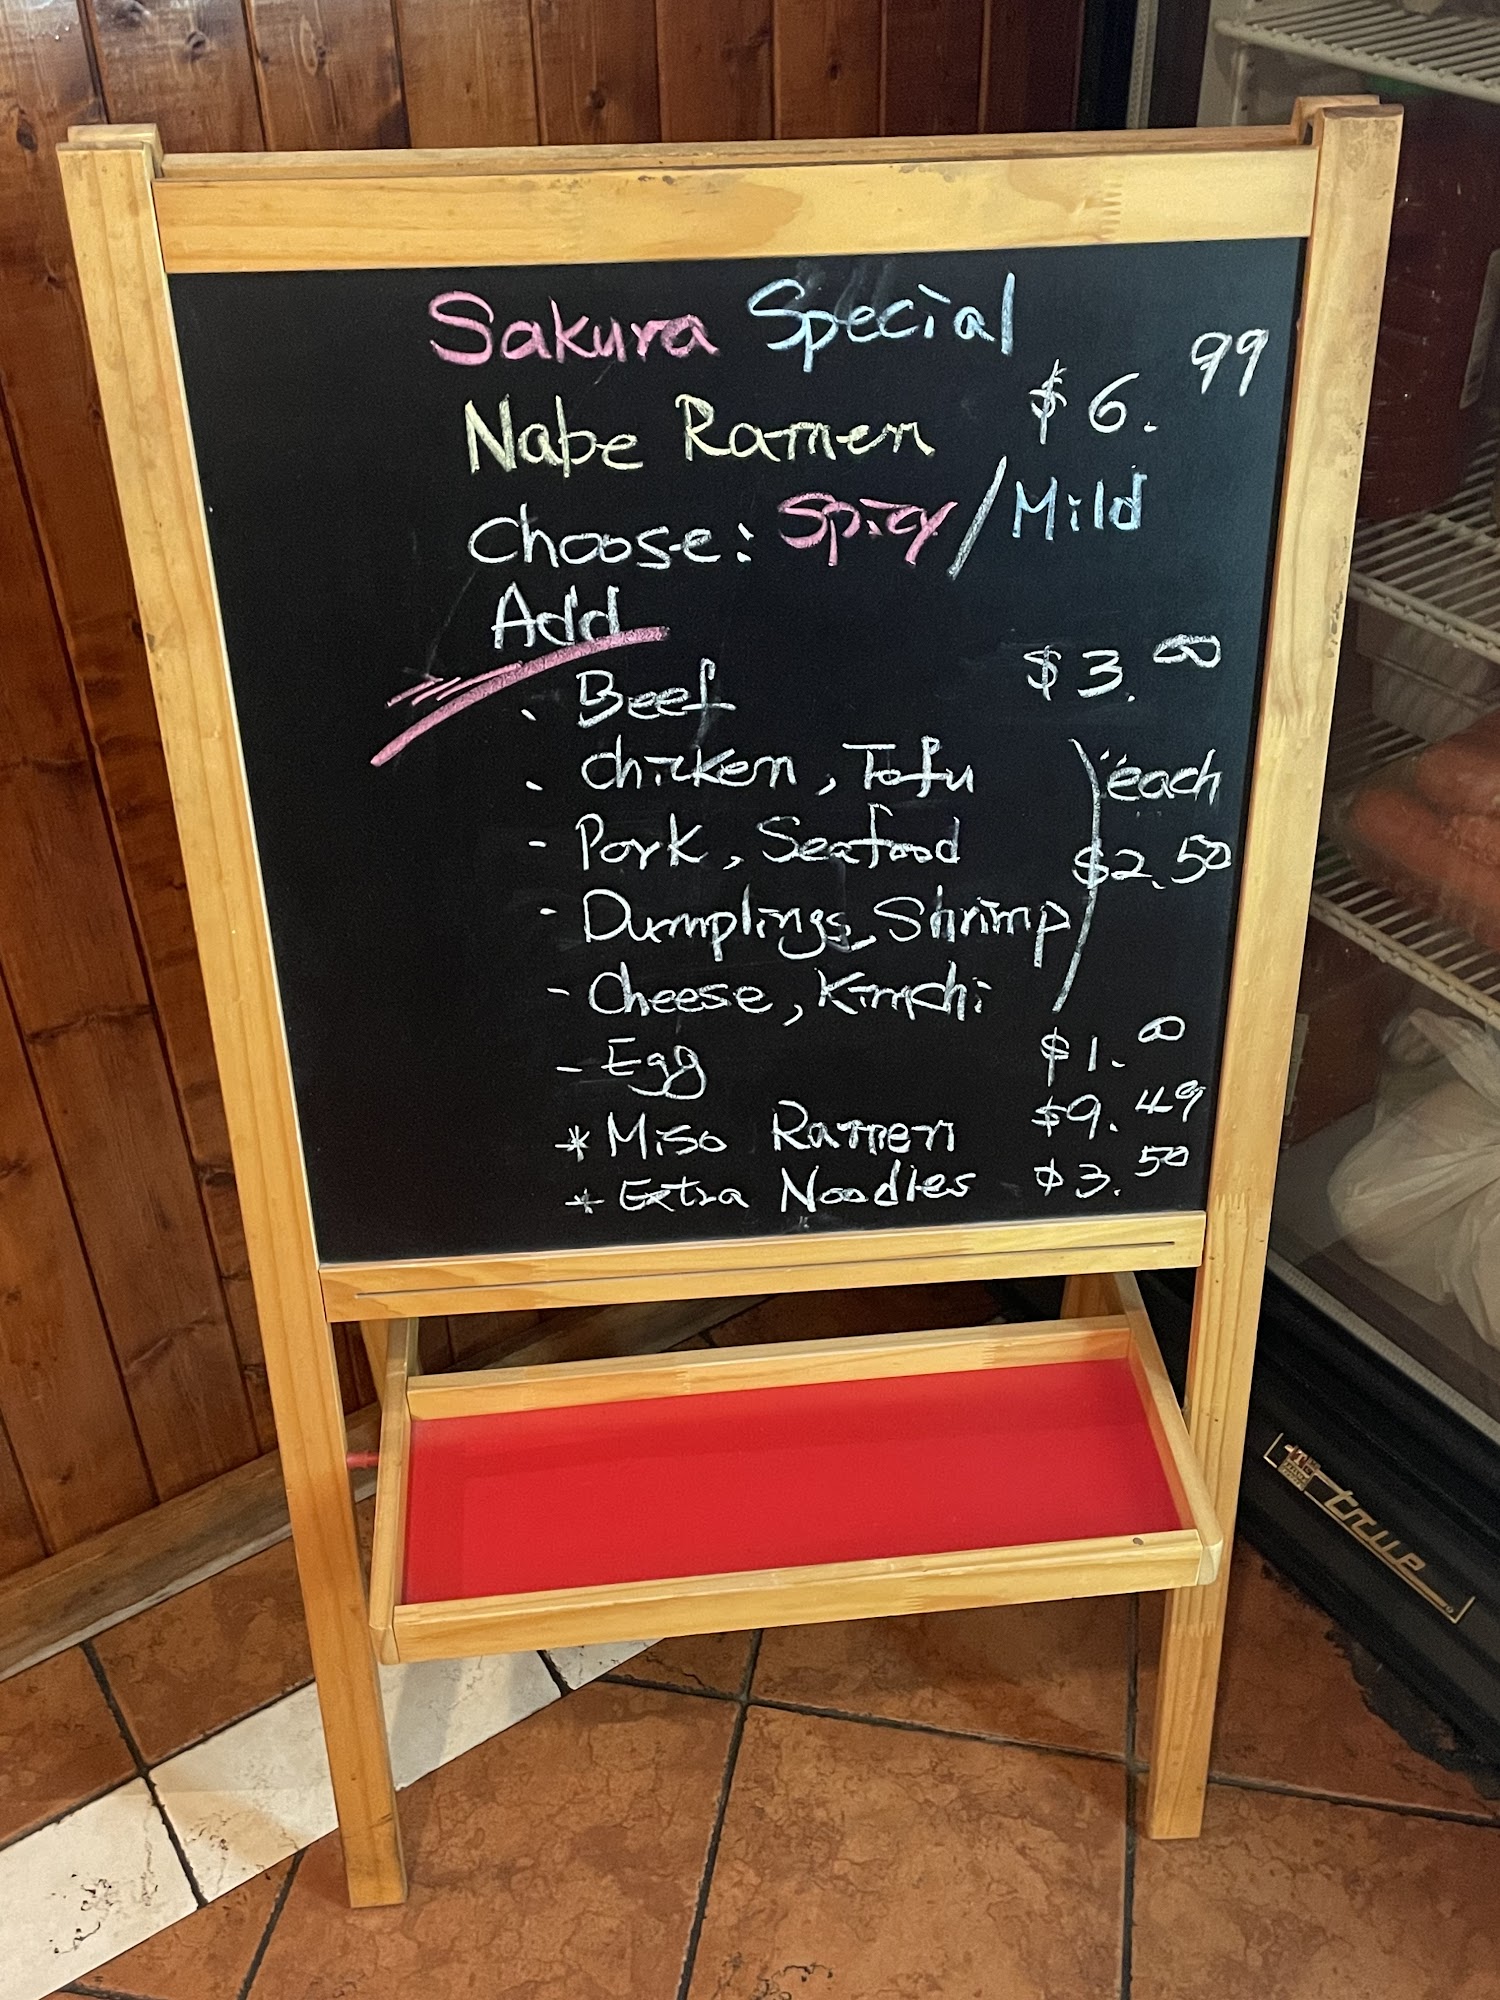 Sakura Special
Nabe Ramen $6.99
Choose: Spicy/Mild
Add
- Beef $3.00
- Chicken, Tofu } each
- Pork, Seafood $2.50
- Dumplings, Shrimp
- Cheese, Kimchi
- Egg $1.00
* Miso Ramen $9.49
* Extra Noodles $3.50
true